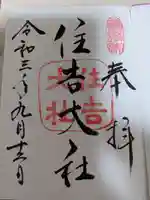 奉拝
住吉大社
住吉大社
令和三年九月十二日